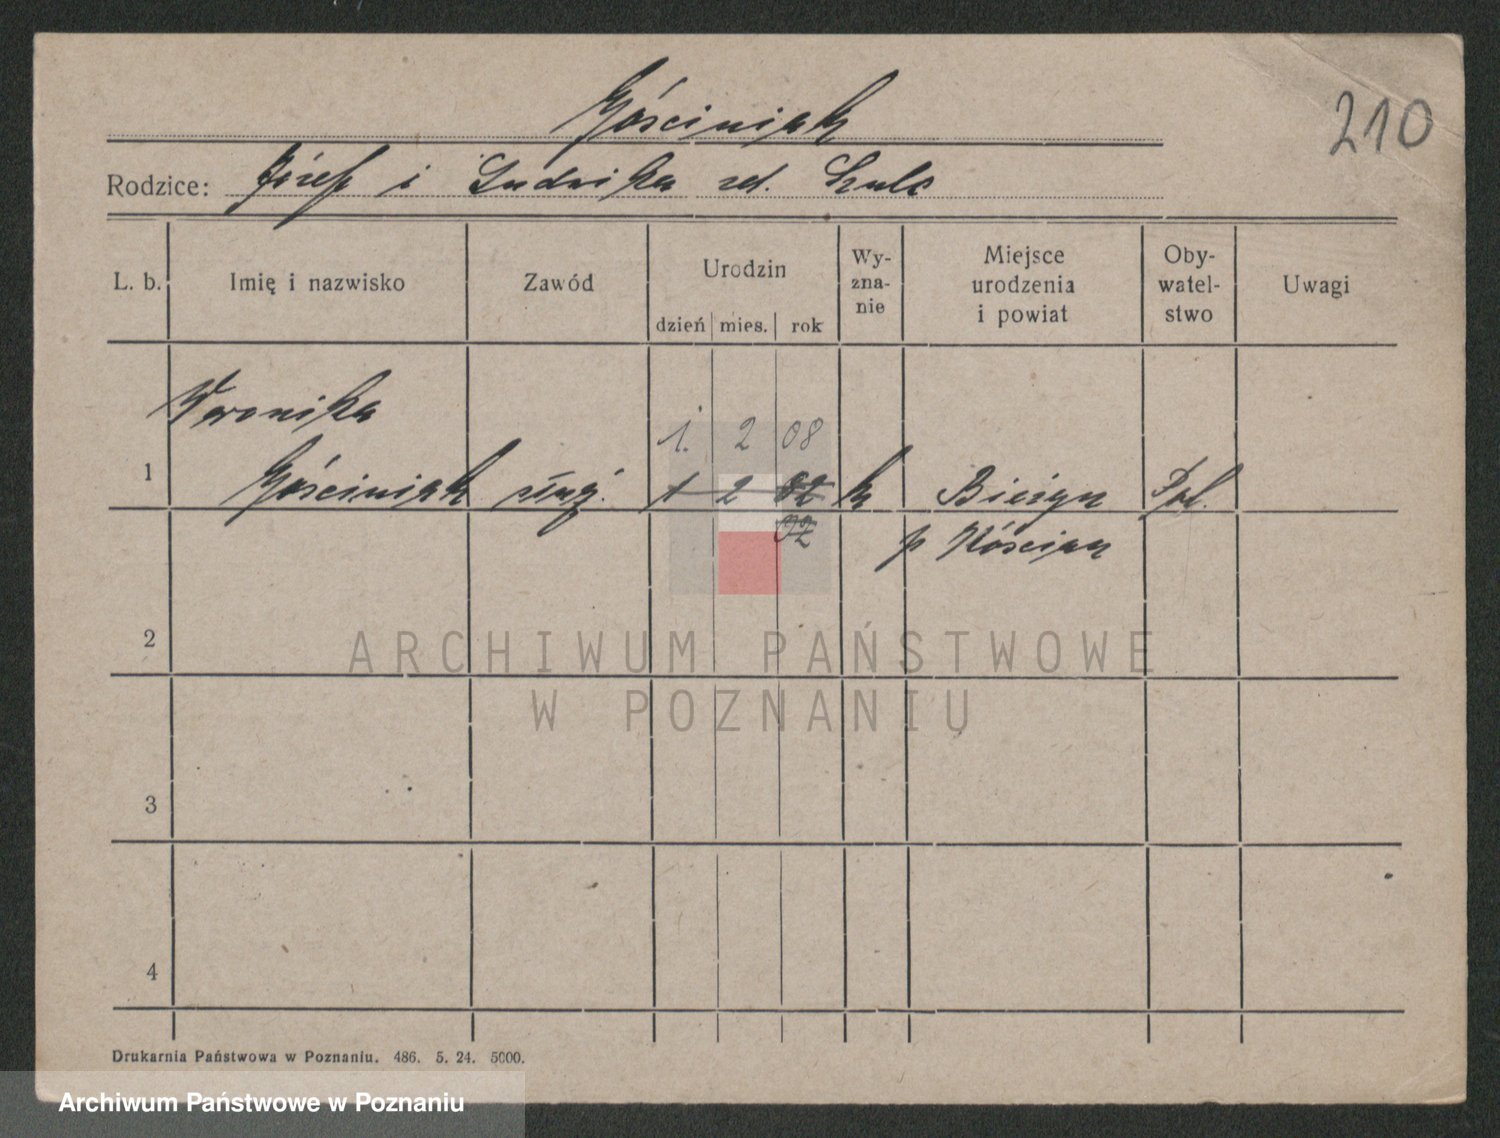 Gościniak
210
Rodzice: Józef i Ludwika zd. Szulc
L. b. Imię i nazwisko Zawód Urodzin dzień mies. rok Wy-zna-nie Miejsce urodzenia i powiat Oby-watel-stwo Uwagi
Weronika
1. 2 08
1 Gościniak służ. 1 2 02 k Bieżyn Pol.
02 p Kościan
2
3
4
Drukarnia Państwowa w Poznaniu. 486. 5. 24. 5000.
ARCHIWUM PAŃSTWOWE
W POZNANIU
Archiwum Państwowe w Poznaniu